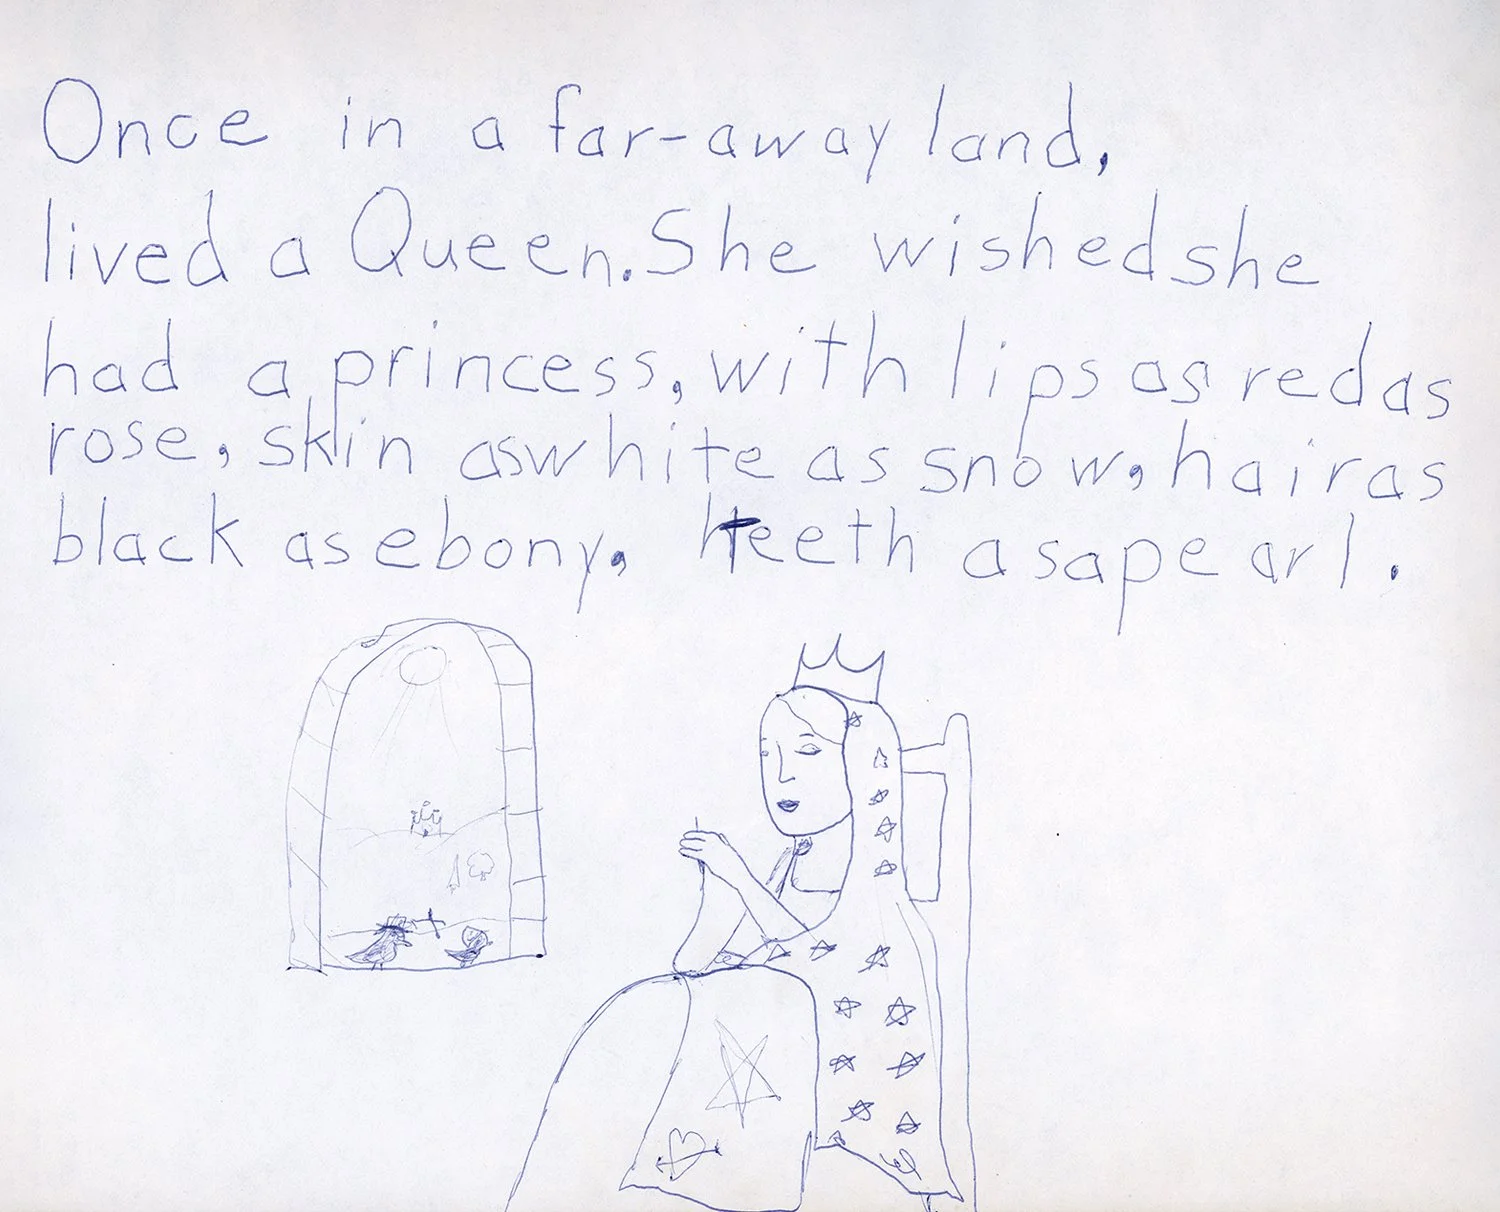 Once in a far-away land,
lived a Queen. She wished she
had a princess, with lips as red as
rose, skin as white as snow, hair as
black as ebony, teeth as a pearl.